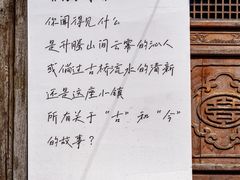 你闻得见什么
是升腾山间云雾的沁人
或倘过古桥流水的清新
还是这座小镇
所有关于“古”和“今”
的故事？